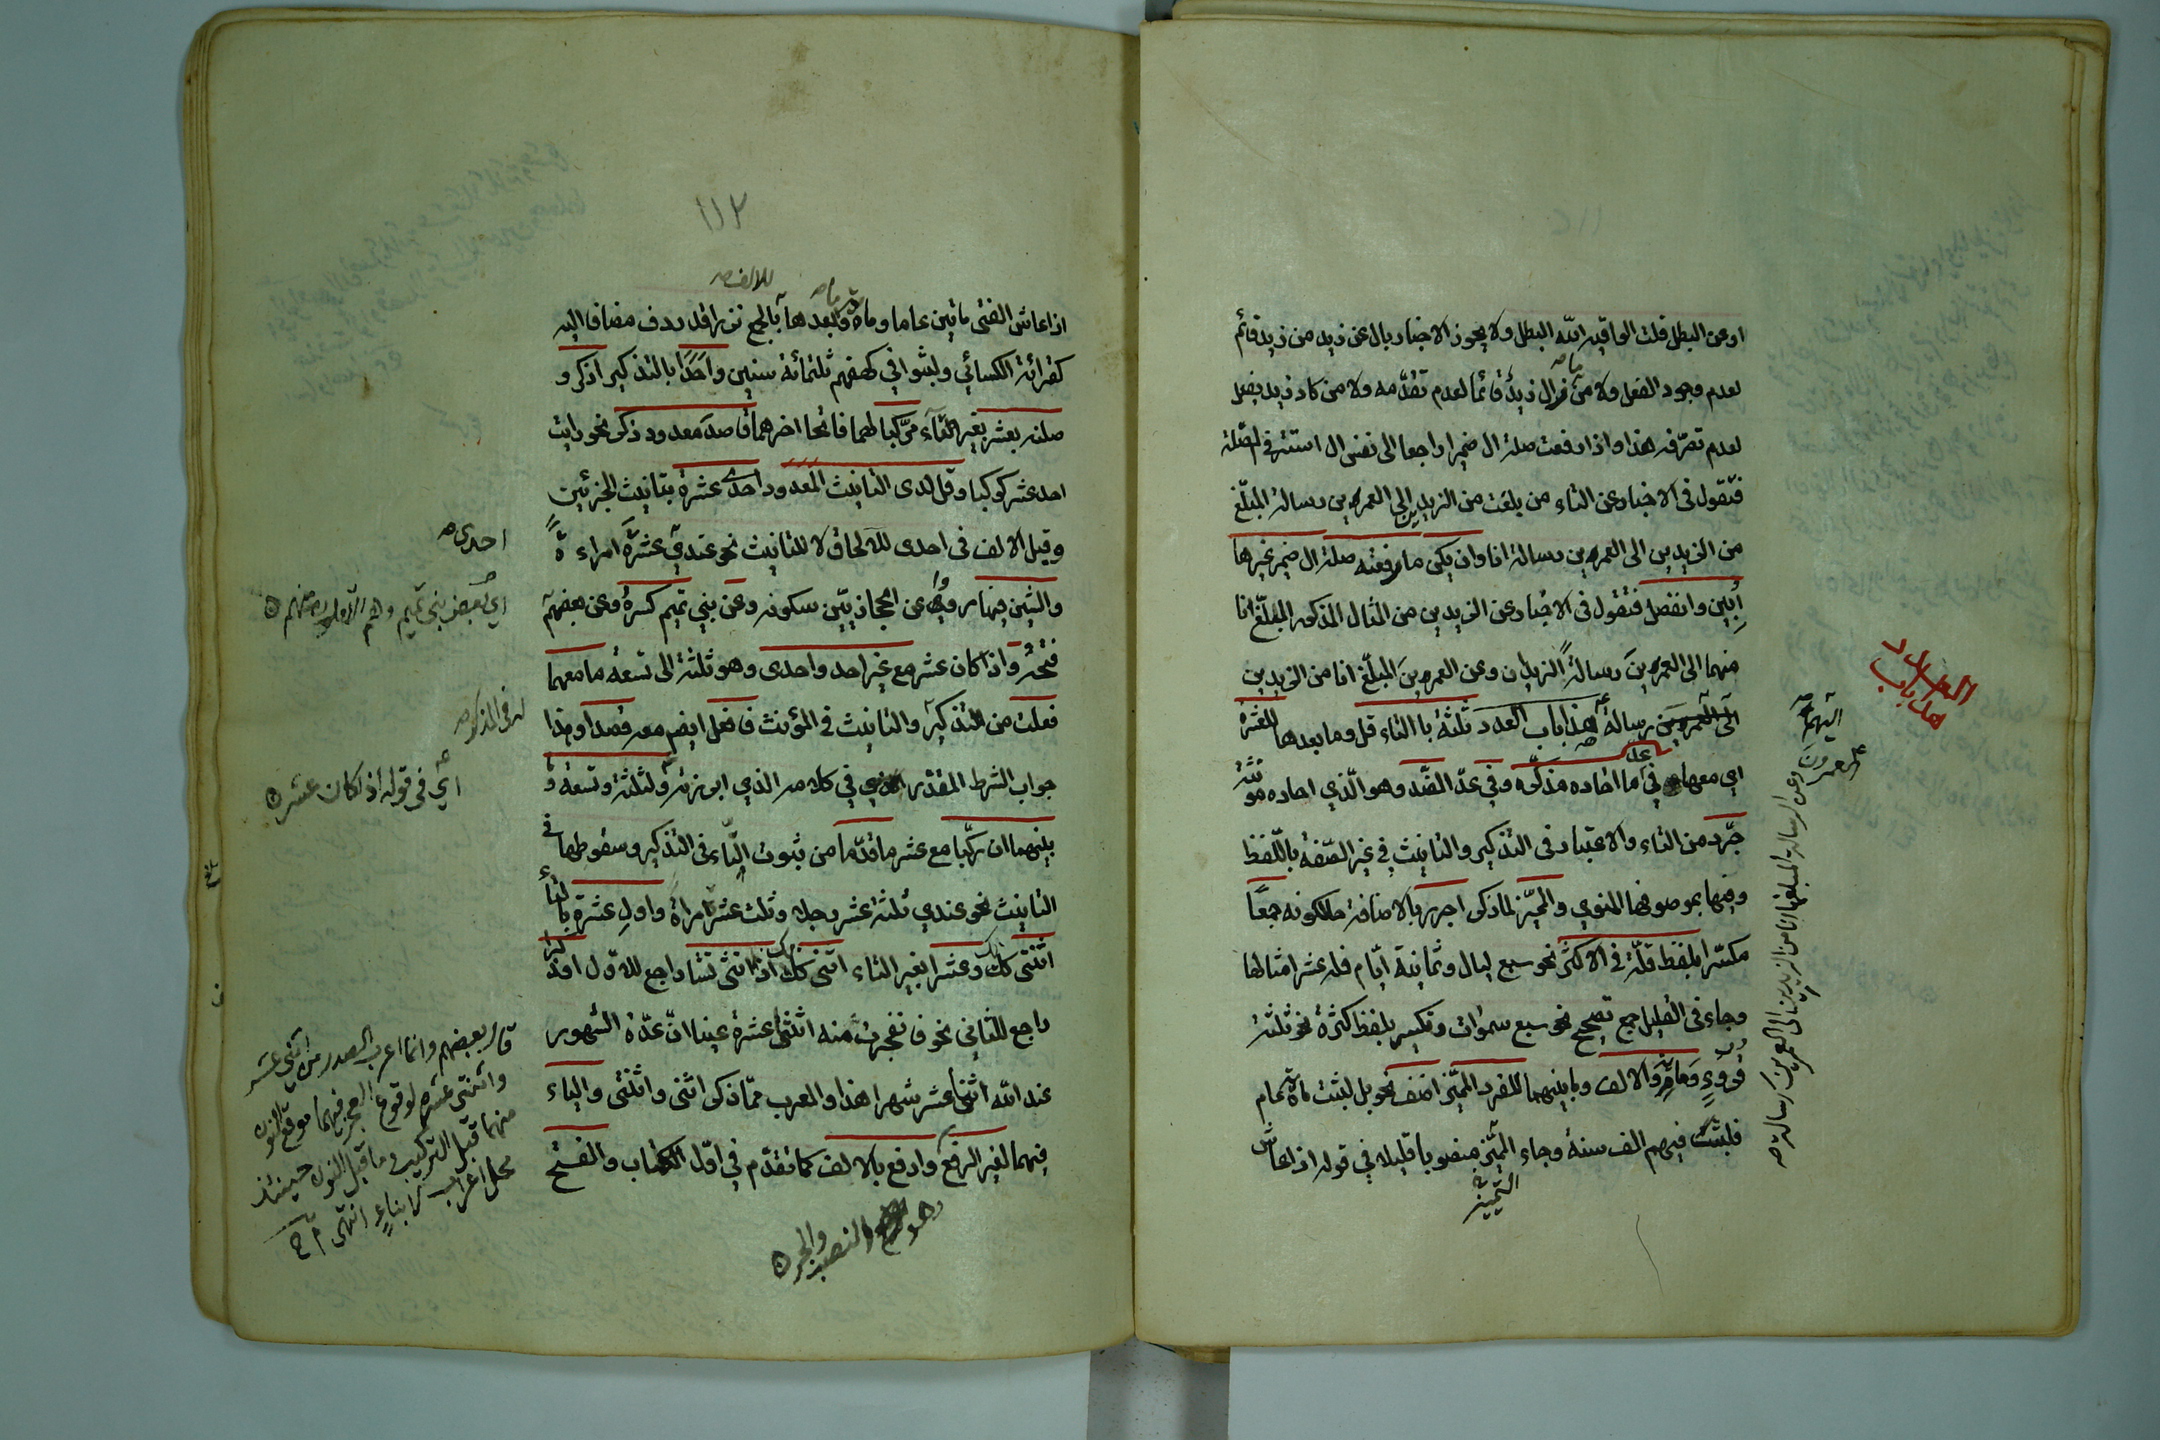 او عن البطل قلت الواقيه الله البطل ولا يجوز الاخبار بال عن زيد من زيد قائم
لعدم وجود الفعل ولا من ما زال زيد قائما لعدم تقدّمه ولا من كاد زيد يفعل
لعدم تصرّفه هذا واذا رفعت صلة ال ضميرا راجعا الى نفس ال استتر في الصّلة
فتقول في الاخبار عن التاء من بلغت من الزيدين الى العمرين رسالة المبلّغ
من الزيدين الى العمرين رسالة انا وان يكن ما رفعته صلة ال ضمير غيرها
أبين وانفصل فتقول في الاخبار عن الزيدين من المثال المذكور المبلّغ انا
منهما الى العمرين رسالةً الزيدان وعن العمرين المبلّغ انا من الزيدين
الى العمرين رسالة هذا باب العدد ثلثة بالتاء قل وما بعدها للعشرة
اي معها في عدّ ما آحاده مذكّره وفي عدّ الضّد وهو الّذي احاده مؤنثة
جرّد من التاء والاعتبار في التذكير والتانيث في غير الصّفة باللّفظ
وفيها بموصوفها المنوي والمميّز لما ذكر اجرر بالاضافة حال كونه جمعًا
مكسّرا بلفظ قلّة في الاكثر نحو سبع ليال وثمانية ايّام فله عشر امثالها
وجاء في القليل جمع تصحيح نحو سبع سموات وتكسير بلفظ كثرة نحو ثلثة
قروءٍ ومائة والالف وما بينهما للمفرد المميّز اضف نحو بل لبثت مائة عام
فلبثت فيهم الف سنة وجاء المميّز منصوبا قليلا في قوله اذا عاش
التمييز
العدد
هذا باب
اليهما
العمرون
وعن الرسالة المبلغها انا من الزيدين الى العمرين رسالة صح
١١٢
للالف صح
اذا عاش الفتى مائتين عاما ومائة وما بعدها بالجمع نزرا قد ردف مضافا اليه
كقرائة الكسائي ولبثوا في كهفهم ثلثمائة سنين واحدًا بالتذكير اذكر و
صلنه بعشر بغير التاء مركّبا لهما فاتحا اخرهما قاصد معدود ذكر نحو رايت
احد عشر كوكبا وقل لدى التانيث المعدود احدى عشرة بتانيث الجزئين
وقيل الالف في احدى للالحاق لا للتانيث نحو عندي عشرة امراءة
احدى صح
والشين فيها رووا عن الحجازيّين سكونه وعن بني تميم كسرة وعن بعضهم
اي بعض بني تميم
فتحه واذا كان عشر مع غير احد واحدى وهو ثلثة الى تسعة ما معهما
فعلت من التذكير والتانيث في المؤنث فافعل ايضم معه قصدا وهذا
له في المذكور صح
جواب الشرط المقدّر في كلامه الذي ابرزته ولثلثة وتسعة و
اي في قوله اذا كان عشر
بينهما ان ركّبا مع عشر ما قدّما من ثبوت التّاء في التذكير وسقوطها في
التانيث نحو عندي ثلثة عشر رجلا وثلث عشرة امراة واول عشرة بالتاء
اثنتى كذلك وعشرا بغير التاء اثنى كذلك اذا انثى تشا راجع للاول او ذكرا
راجع للثاني نحو فانفجرت منه اثنتا عشرة عينا انّ عدّة الشهور
عند الله اثنا عشر شهرا هذا والمعرب ممّا ذكر اثنى واثنتى والياء
فيهما لغير الرفع وارفع بالالف كما تقدّم في اوّل الكتاب والفتح
وهو النصب والجر
قال بعضهم وانما اعرب الصدر من اثني عشر
واثنتي عشرة لوقوع العجز فيهما موقع النون
منهما قبل التركيب وما قبل النون حينئذ
محل اعراب لا بناء انتهى